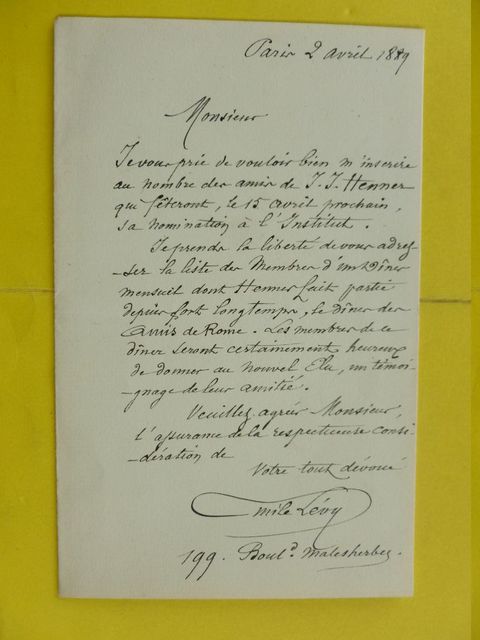 Paris 2 avril 1889
Monsieur
Je vous prie de vouloir bien m'inscrire
au nombre des amis de J. J. Henner
qui fêteront, le 15 avril prochain,
sa nomination à l'Institut.
Je prends la liberté de vous adres-
-ser la liste des Membres d'un Dîner
mensuel dont Henner fait partie
depuis fort longtemps, le dîner des
Amis de Rome. Les membres de ce
dîner seront certainement heureux
de donner au nouvel Elu, un témoi-
-gnage de leur amitié.
Veuillez agréer Monsieur,
l'assurance de la respectueuse consi-
-dération de
Votre tout dévoué
Emile Lévy
199. Boul.d Malesherbes.